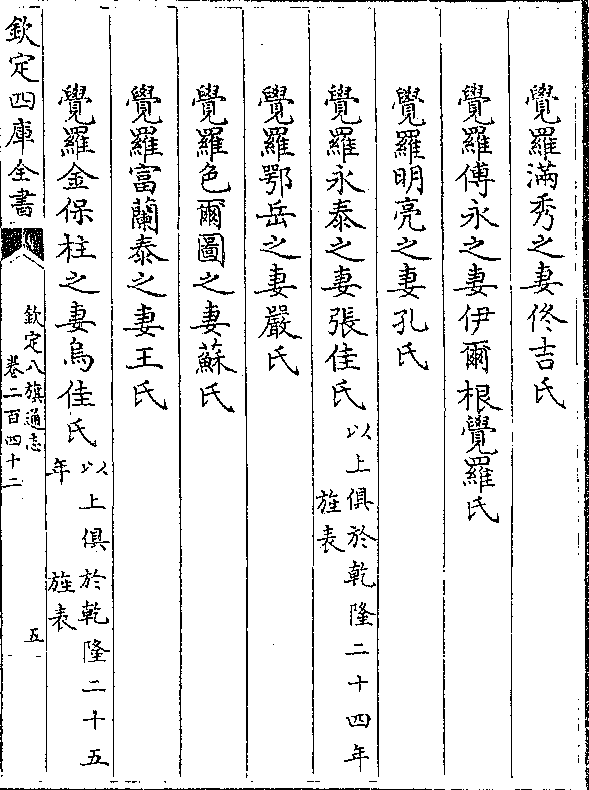 覺羅滿秀之妻佟吉氏
覺羅傅永之妻伊爾根覺羅氏
覺羅明亮之妻孔氏
覺羅永泰之妻張佳氏以上俱於乾隆二十四年
旌表
覺羅鄂岳之妻嚴氏
覺羅色爾圖之妻蘇氏
覺羅富蘭泰之妻王氏
覺羅金保柱之妻烏佳氏以上俱於乾隆二十五
年 旌表
欽定四庫全書
欽定八旗通志
卷二百四十二
五